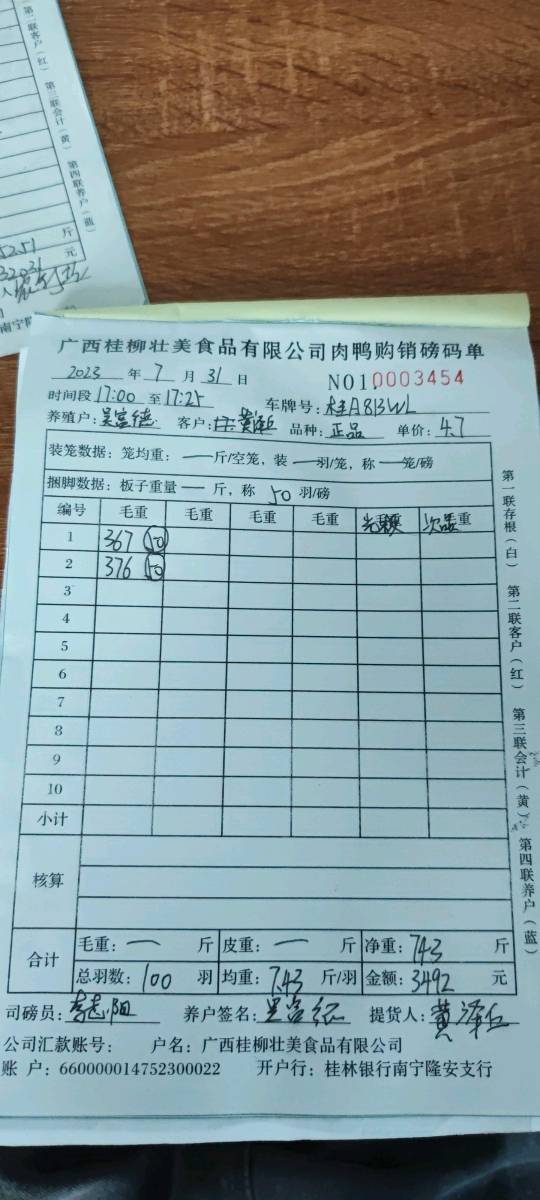 第二联客户(红) 第三联会计(黄) 第四联养户(蓝)
5251 斤
32031 元
南宁隆
广西桂柳壮美食品有限公司肉鸭购销磅码单
2023 年 7 月 31 日 NO10003454
时间段 17:00 至 17:25 车牌号: 桂A813WL
养殖户: 客户: 品种: 正品 单价: 4.7
装笼数据: 笼均重: — 斤/空笼, 装 — 羽/笼, 称 — 笼/磅
捆脚数据: 板子重量 — 斤, 称 50 羽/磅
编号 毛重 毛重 毛重 毛重 次品 毛重
1 367 50
2 376 50
3
4
5
6
7
8
9
10
小计
核算
合计 毛重: — 斤 皮重: — 斤 净重: 743 斤
总羽数: 100 羽 均重: 7.43 斤/羽 金额: 3492 元
司磅员: 李志阳 养户签名: 提货人:
公司汇款账号: 户名: 广西桂柳壮美食品有限公司
账 户: 660000014752300022 开户行: 桂林银行南宁隆安支行
第一联存根(白) 第二联客户(红) 第三联会计(黄) 第四联养户(蓝)